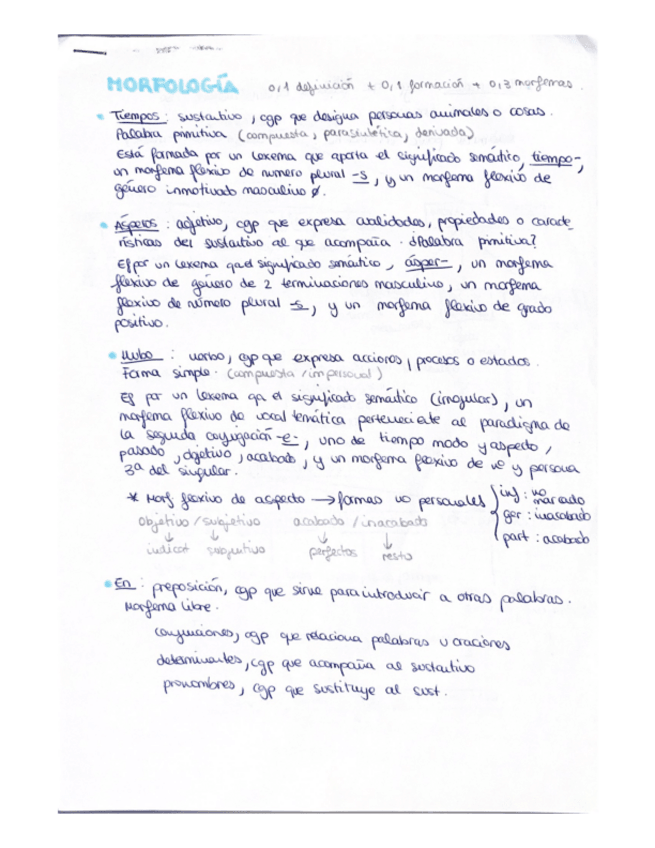 MORFOLOGÍA 0,1 definición + 0,1 formación + 0,3 morfemas
Tiempos : sustantivo, cgp que designa personas animales o cosas.
Palabra primitiva (compuesta, parasintética, derivada)
Está formada por un lexema que aporta el significado semántico, tiempo-,
un morfema flexivo de numero plural -s, y un morfema flexivo de
género inmotivado masculino ø.
Ásperos : adjetivo, cgp que expresa cualidades, propiedades o caracte
rísticas del sustantivo al que acompaña. ¿Palabra primitiva?
Ef por un lexema qa el significado semántico, ásper-, un morfema
flexivo de género de 2 terminaciones masculino, un morfema
flexivo de número plural -s, y un morfema flexivo de grado
positivo.
Hubo : verbo, cgp que expresa acciones, procesos o estados.
Forma simple. (compuesta / impersonal)
Ef por un lexema qa el significado semántico (irregular), un
morfema flexivo de vocal temática perteneciente al paradigma de
la segunda conjugación -e-, uno de tiempo modo y aspecto,
pasado, objetivo, acabado, y un morfema flexivo de nº y persona
3ª del singular.
* Morf flexivo de aspecto → formas no personales { inf : no
marcado
ger : inacabado
part : acabado
objetivo / subjetivo acabado / inacabado
↓ ↓ ↓ ↓
indicat subjuntivo perfectos resto
En : preposición, cgp que sirve para introducir a otras palabras.
Morfema libre.
conjunciones, cgp que relaciona palabras u oraciones
determinantes, cgp que acompaña al sustantivo
pronombres, cgp que sustituye al sust.